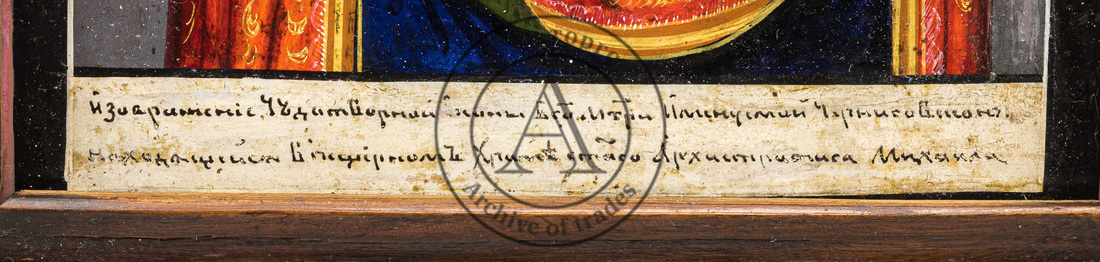 Изображение Чѣдотворной Иконы Бго мтри Имянуемой Черниговской.
находящейся В пещерномъ Храмѣ стаго Архистратига Михаила
Archive of trades